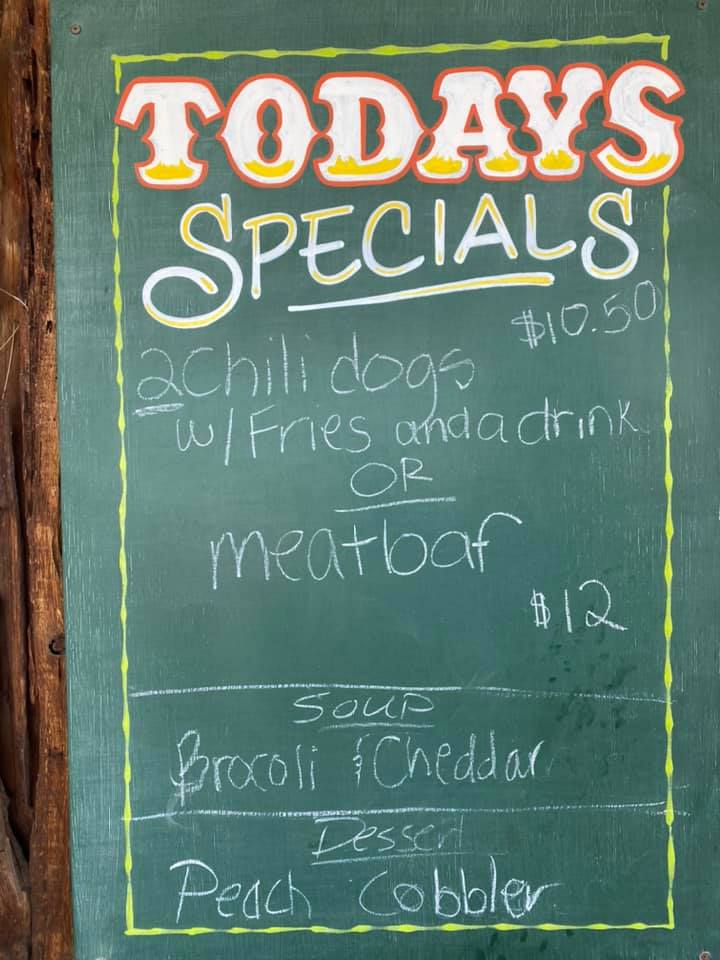 TODAYS
SPECIALS
$10.50
2 Chili dogs
w/ Fries and a drink
OR
meatloaf
$12
Soup
Brocoli & Cheddar
Dessert
Peach Cobbler